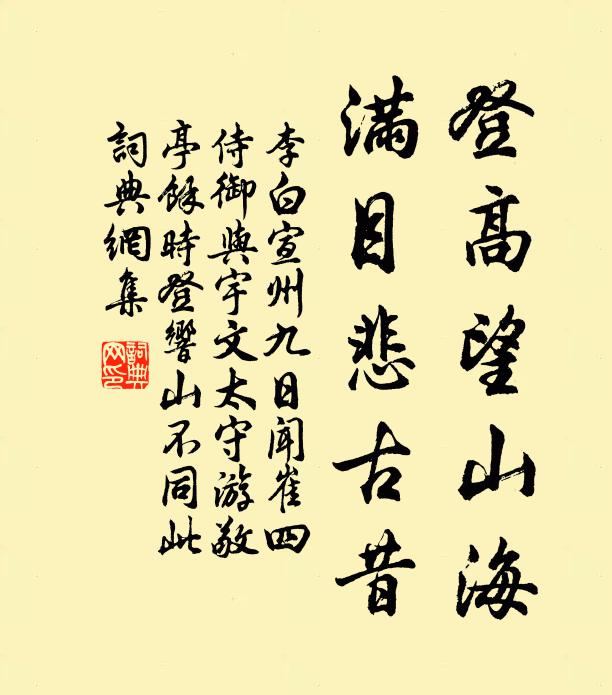 登高望山海
滿目悲古昔
李白宣州九日聞崔四
侍御與宇文太守游敬
亭餘時登響山不同此
詞典網集
詞典
网印